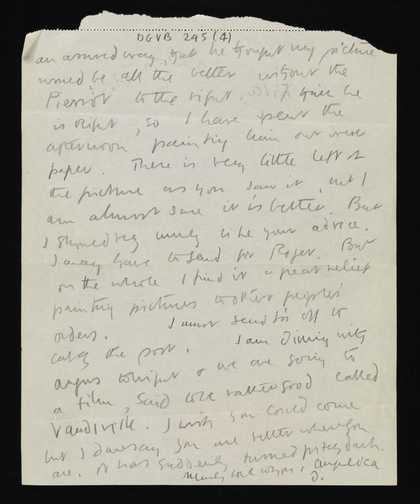 DGVB 295 (4)
an assured way, that he thought my picture
would be all the better without the
Pierrot to the right. I think he
is right, so I have spent the
afternoon painting him out over
paper. There is very little left of
the picture as you saw it, but I
am almost sure it is better. But
I should very much like your advice.
I may have to send for Roger. But
on the whole I find it a great relief
painting pictures to other peoples'
orders. I must send this off to
catch the post. I am dining with
Angus tonight & we are going to
a film, said to be rather good called
Vaudiville. I wish you could come
but I daresay you are better where you
are. It has suddenly turned pitch dark.
Angelica
D.